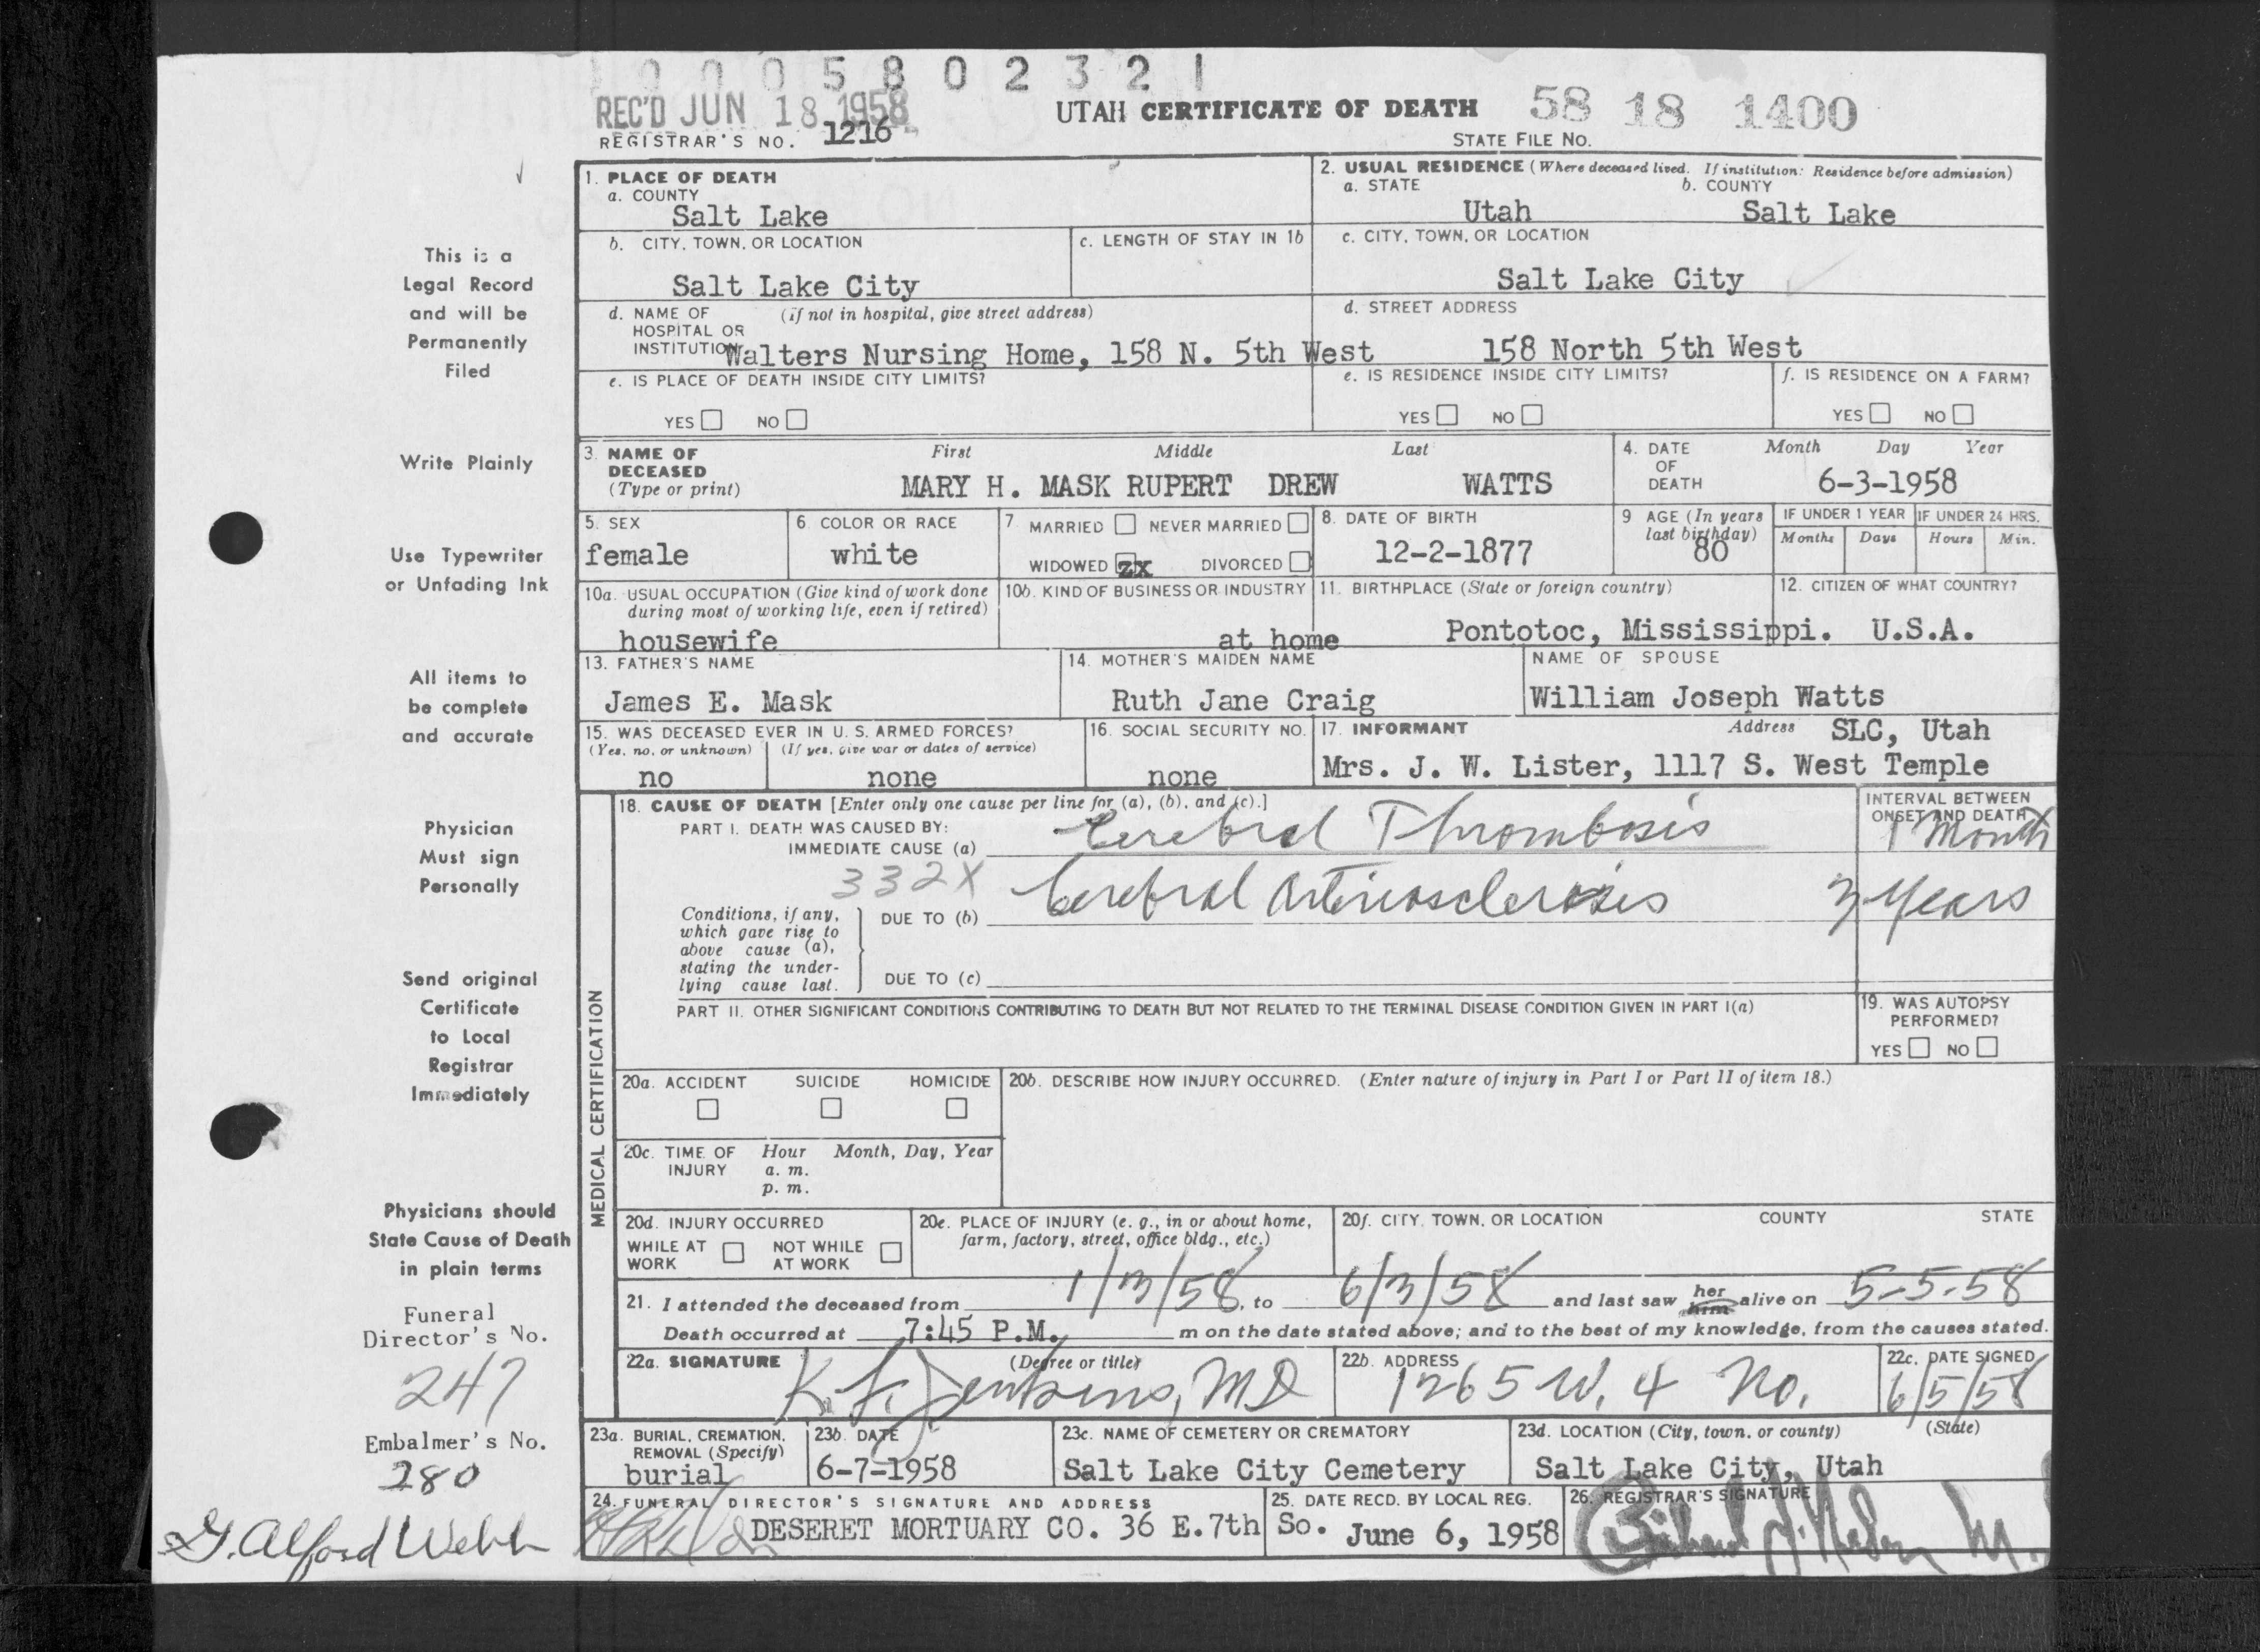 0 0 0 5 8 0 2 3 2 1
REC'D JUN 18 1958
REGISTRAR'S NO. 1216
UTAH CERTIFICATE OF DEATH 58 18 1400
STATE FILE NO.
1. PLACE OF DEATH
a. COUNTY
Salt Lake
2. USUAL RESIDENCE (Where deceased lived. If institution: Residence before admission)
a. STATE b. COUNTY
Utah Salt Lake
b. CITY, TOWN, OR LOCATION
Salt Lake City
c. LENGTH OF STAY IN 1b
c. CITY, TOWN, OR LOCATION
Salt Lake City
d. NAME OF HOSPITAL OR INSTITUTION (if not in hospital, give street address)
Walters Nursing Home, 158 N. 5th West
d. STREET ADDRESS
158 North 5th West
e. IS PLACE OF DEATH INSIDE CITY LIMITS?
YES NO
e. IS RESIDENCE INSIDE CITY LIMITS?
YES NO
f. IS RESIDENCE ON A FARM?
YES NO
3. NAME OF DECEASED (Type or print)
First Middle Last
MARY H. MASK RUPERT DREW WATTS
4. DATE OF DEATH Month Day Year
6-3-1958
5. SEX
female
6. COLOR OR RACE
white
7. MARRIED NEVER MARRIED
WIDOWED zx DIVORCED
8. DATE OF BIRTH
12-2-1877
9 AGE (In years last birthday)
80
IF UNDER 1 YEAR IF UNDER 24 HRS.
Months Days Hours Min.
10a. USUAL OCCUPATION (Give kind of work done during most of working life, even if retired)
housewife
10b. KIND OF BUSINESS OR INDUSTRY
at home
11. BIRTHPLACE (State or foreign country)
Pontotoc, Mississippi.
12. CITIZEN OF WHAT COUNTRY?
U.S.A.
13. FATHER'S NAME
James E. Mask
14. MOTHER'S MAIDEN NAME
Ruth Jane Craig
NAME OF SPOUSE
William Joseph Watts
15. WAS DECEASED EVER IN U. S. ARMED FORCES?
(Yes, no, or unknown) (If yes, give war or dates of service)
no none
16. SOCIAL SECURITY NO.
none
17. INFORMANT Address SLC, Utah
Mrs. J. W. Lister, 1117 S. West Temple
MEDICAL CERTIFICATION
18. CAUSE OF DEATH [Enter only one cause per line for (a), (b), and (c).]
PART I. DEATH WAS CAUSED BY:
IMMEDIATE CAUSE (a) Cerebral Thrombosis
INTERVAL BETWEEN ONSET AND DEATH
1 Month
332X
Conditions, if any, which gave rise to above cause (a), stating the underlying cause last.
DUE TO (b) Cerebral Arteriosclerosis 3 years
DUE TO (c)
PART II. OTHER SIGNIFICANT CONDITIONS CONTRIBUTING TO DEATH BUT NOT RELATED TO THE TERMINAL DISEASE CONDITION GIVEN IN PART I(a)
19. WAS AUTOPSY PERFORMED?
YES NO
20a. ACCIDENT SUICIDE HOMICIDE
20b. DESCRIBE HOW INJURY OCCURRED. (Enter nature of injury in Part I or Part II of item 18.)
20c. TIME OF INJURY Hour Month, Day, Year
a. m.
p. m.
20d. INJURY OCCURRED
WHILE AT WORK NOT WHILE AT WORK
20e. PLACE OF INJURY (e. g., in or about home, farm, factory, street, office bldg., etc.)
20f. CITY, TOWN, OR LOCATION COUNTY STATE
21. I attended the deceased from 1/3/58, to 6/3/58 and last saw her him alive on 5-5-58
Death occurred at 7:45 P.M. m on the date stated above; and to the best of my knowledge, from the causes stated.
22a. SIGNATURE (Degree or title)
K. L. Jenkins, MD
22b. ADDRESS
1265 W. 4 No.
22c. DATE SIGNED
6/5/58
23a. BURIAL, CREMATION, REMOVAL (Specify)
burial
23b. DATE
6-7-1958
23c. NAME OF CEMETERY OR CREMATORY
Salt Lake City Cemetery
23d. LOCATION (City, town, or county) (State)
Salt Lake City, Utah
24. FUNERAL DIRECTOR'S SIGNATURE AND ADDRESS
DESERET MORTUARY CO. 36 E.7th So.
25. DATE RECD. BY LOCAL REG.
June 6, 1958
26. REGISTRAR'S SIGNATURE
This is a
Legal Record
and will be
Permanently
Filed
Write Plainly
Use Typewriter
or Unfading Ink
All items to
be complete
and accurate
Physician
Must sign
Personally
Send original
Certificate
to Local
Registrar
Immediately
Physicians should
State Cause of Death
in plain terms
Funeral
Director's No.
247
Embalmer's No.
280
G. Alford Webb